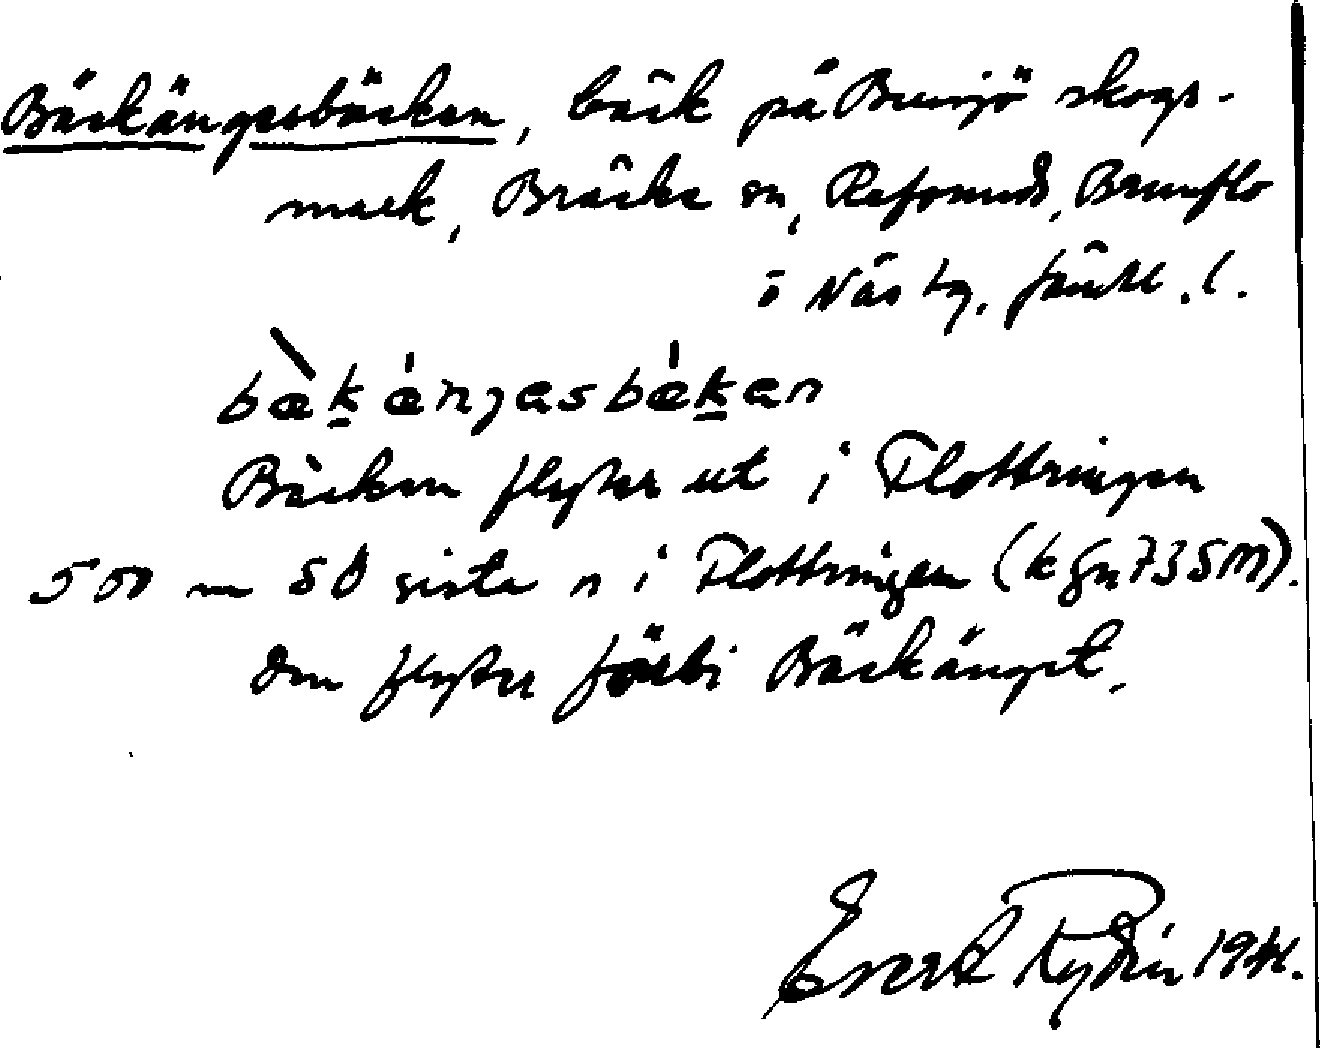 Bäckängesbäcken, bäck på Bensjö skogs-
mark, Bräcke sn, Refsunds, Brunflo
o Näs tg. Jämtl. l.
bæ̀k æ̀njasbækan
Bäcken flyter ut i Flottringen
500 m SO sista n i Flottringen (k Gn 73 5M).
Den flyter förbi Bäckänget.
Evert Rydin 1941.